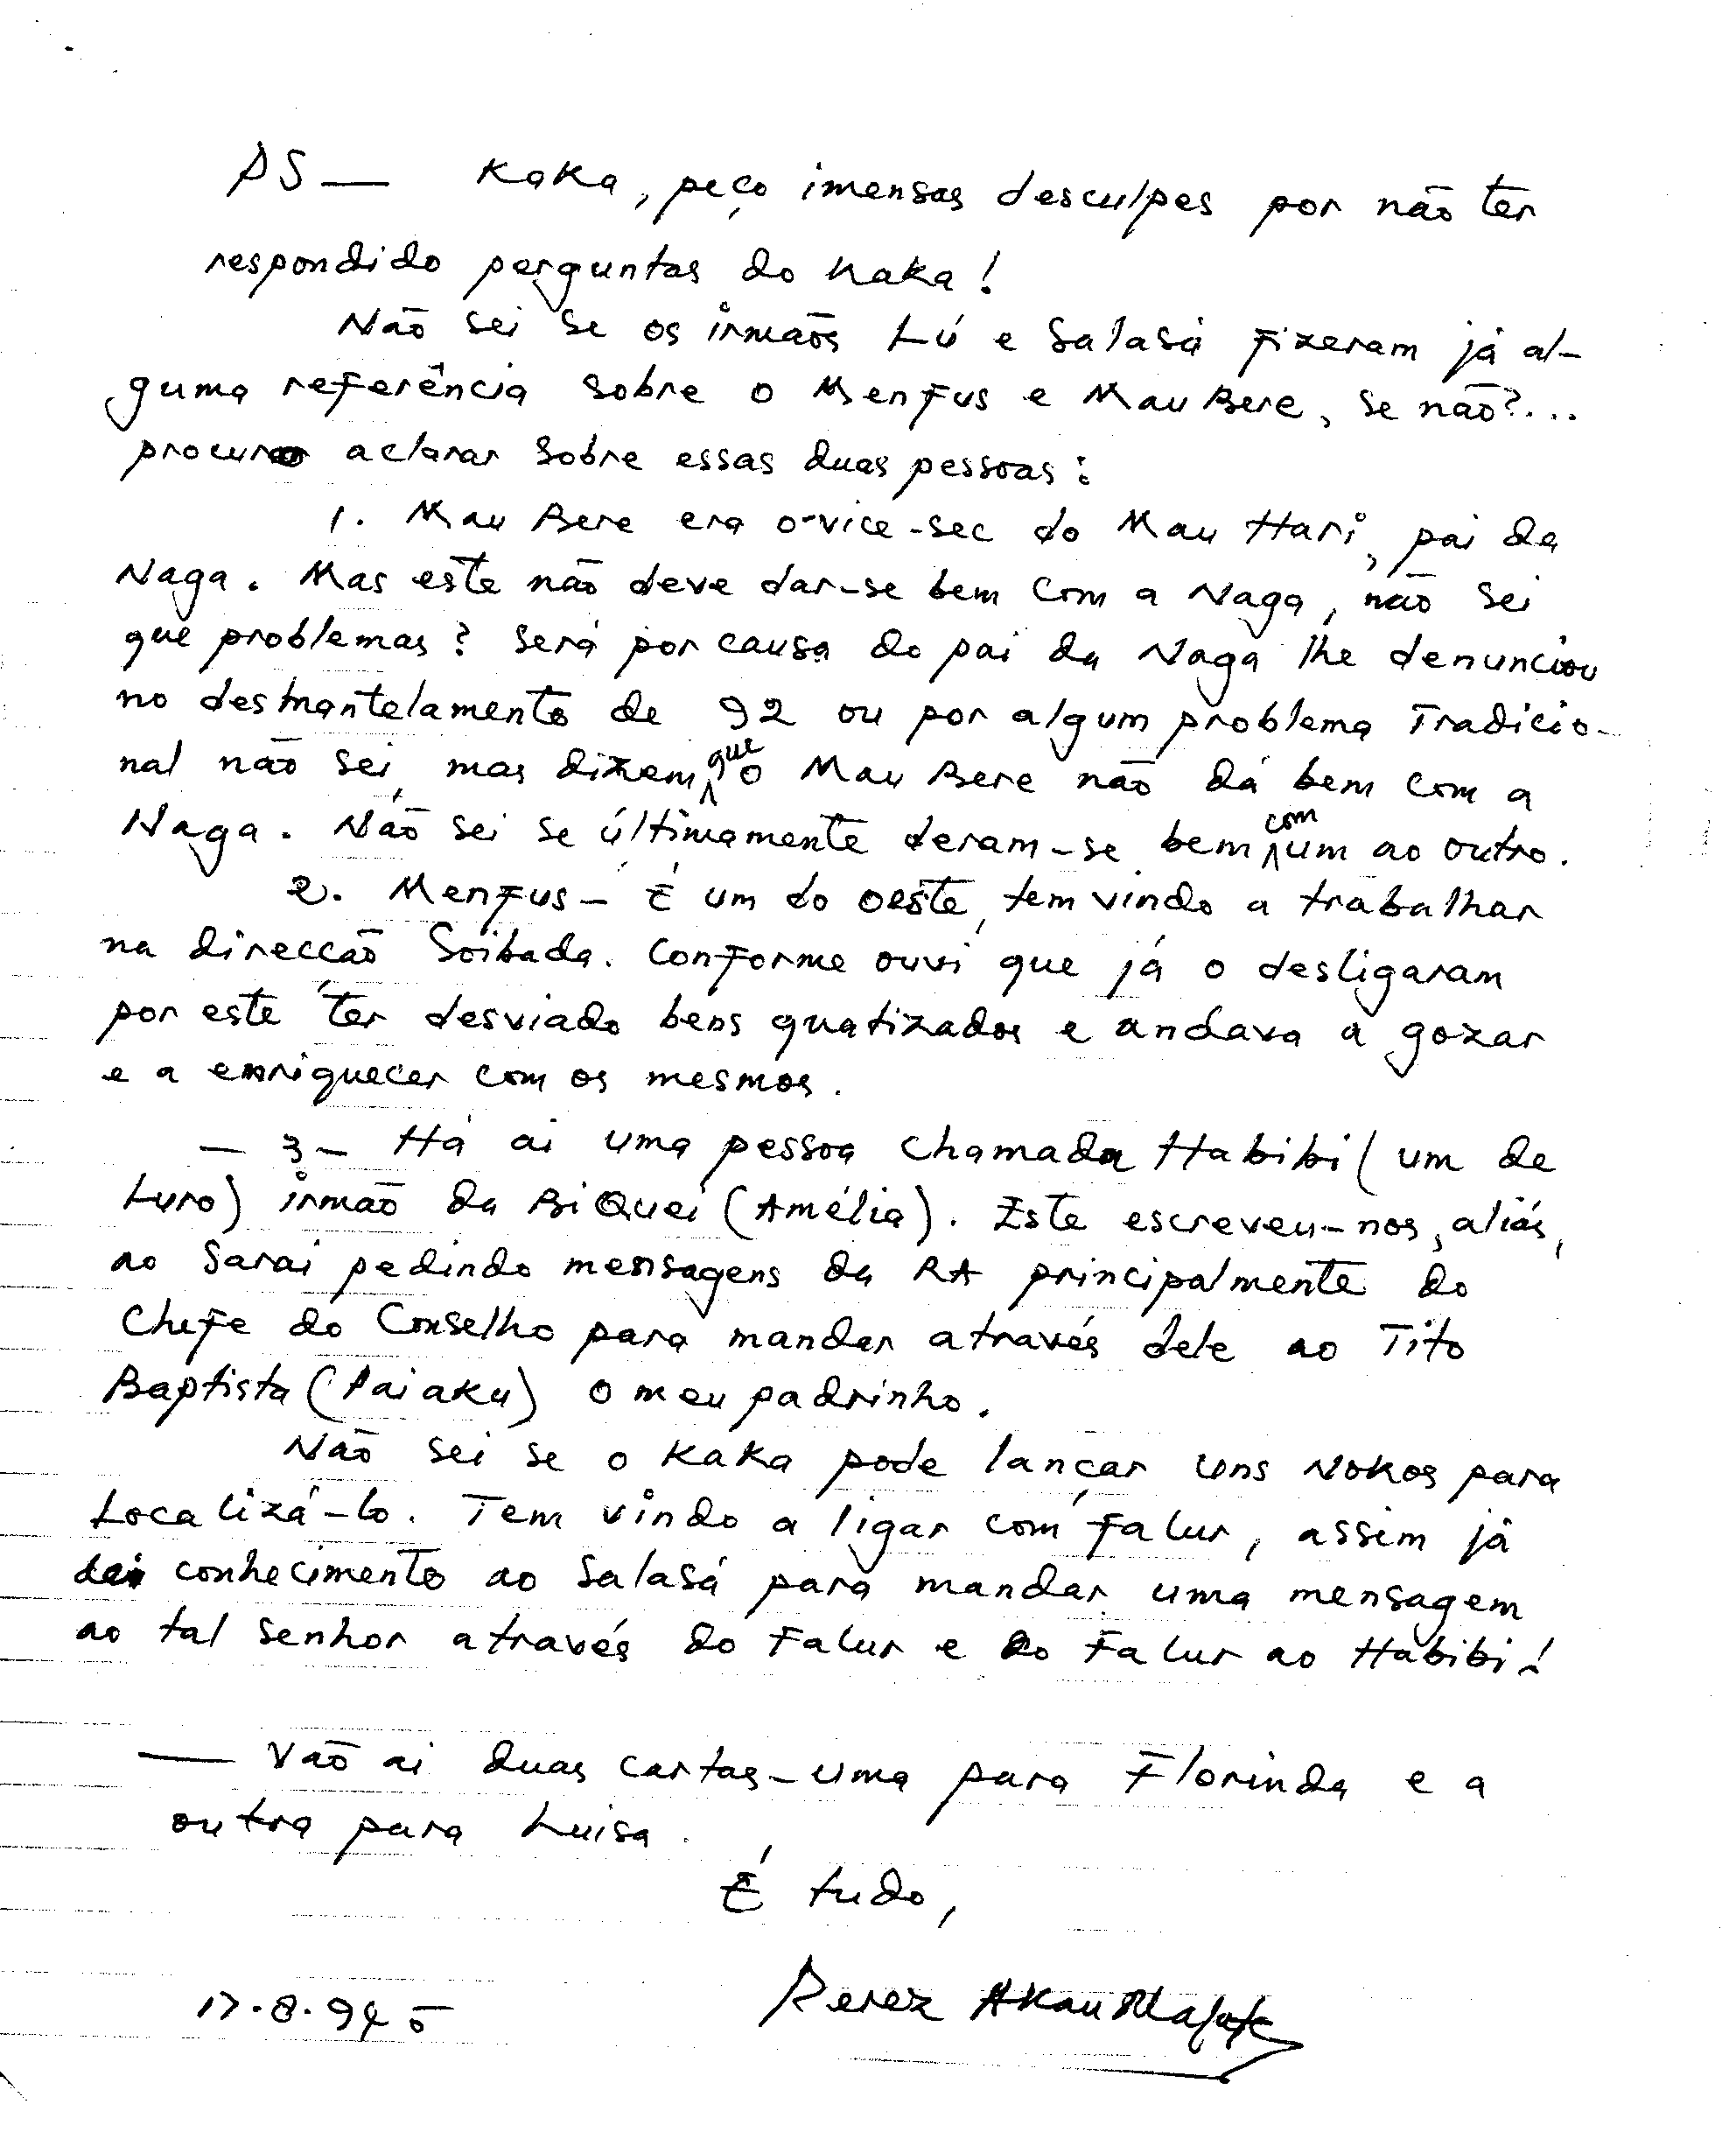 PS — Kaka, peço imensas desculpes por não ter
respondido perguntas do Kaka!
Não sei se os irmãos Lú e Salasá fizeram já al-
guma referência sobre o Menfus e Mau Bere, se não?...
procuro aclarar sobre essas duas pessoas:
1. Mau Bere era o vice-sec do Mau Hari, pai da
Naga. Mas este não deve dar-se bem com a Naga, não sei
que problemas? Será por causa do pai da Naga lhe denunciou
no desmantelamento de 92 ou por algum problema Tradicio-
nal não sei, mas dizem que o Mau Bere não dá bem com a
Naga. Não sei se últimamente deram-se bem com um ao outro.
2. Menfus - É um do oeste, tem vindo a trabalhar
na direccão Soibada. Conforme ouvi que já o desligaram
por este ter desviado bens quatizados e andava a gozar
e a enriquecer com os mesmos.
— 3 - Há ai uma pessoa chamada Habibi (um de
Luro) irmão da BiQuei (Amélia). Este escreveu-nos, aliás,
ao Sarai pedindo mensagens da RA principalmente do
Chefe do Conselho para mandar através dele ao Tito
Baptista (Paiaku) o meu padrinho.
Não sei se o Kaka pode lançar uns Nokos para
Localizá-lo. Tem vindo a ligar com Falur, assim já
dei conhecimento ao Salasá para mandar uma mensagem
ao tal senhor através do Falur e do Falur ao Habibi!
— Vão ai duas cartas - uma para Florinda e a
outra para Luisa.
É tudo,
17.8.94
Perez Akau